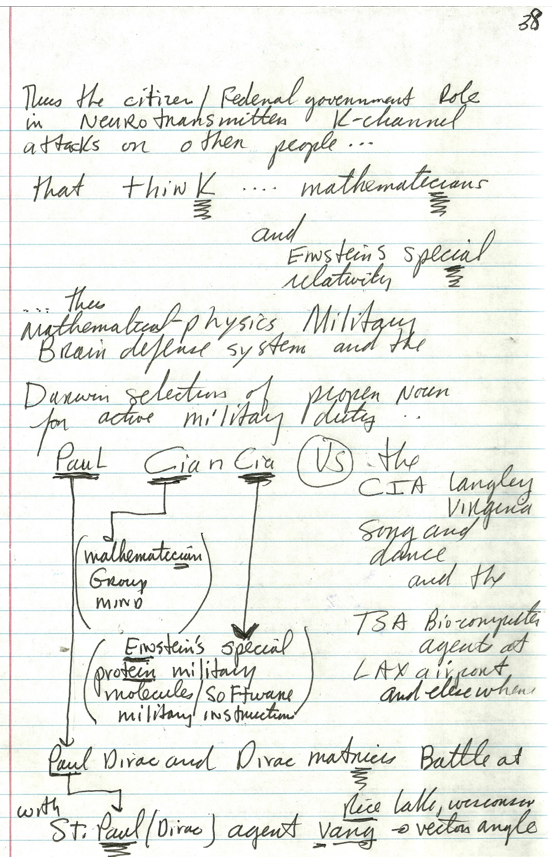 38
Thus the citizen/Federal government Role
in Neurotransmitter K-channel
attacks on other people...
that thinK .... mathematecians
and
Einstein's special
relativity
.... thus
Mathematical-physics Military
Brain defense system and the
Darwin selection of proper Noun
for active military duty ..
Paul Cian Cia VS the
CIA Langley
Virginia
Song and
dance
and the
(mathematecian
Group
MIND)
TSA Bio-computer
agents at
LAX airport
and elsewhere
(Einstein's special
protein military
molecules/Software
military instruction)
Paul Dirac and Dirac matricis Battle at
Rice Lake, Wisconsin
with
St. Paul (Dirac) agent Vang → vector angle